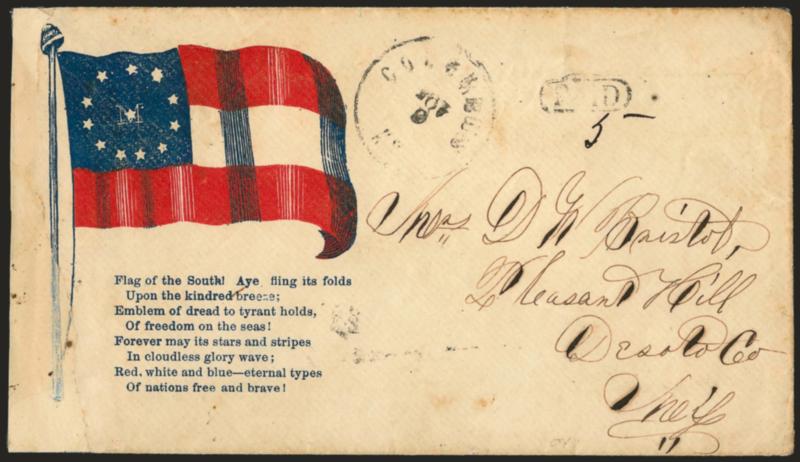 M
COLUMBUS
NOV
9
PAID
5
Mrs D W Bristol,
Pleasant Hill
Desoto Co
Flag of the South! Aye fling its folds
Upon the kindred breeze;
Emblem of dread to tyrant holds,
Of freedom on the seas!
Forever may its stars and stripes
In cloudless glory wave;
Red, white and blue—eternal types
Of nations free and brave!